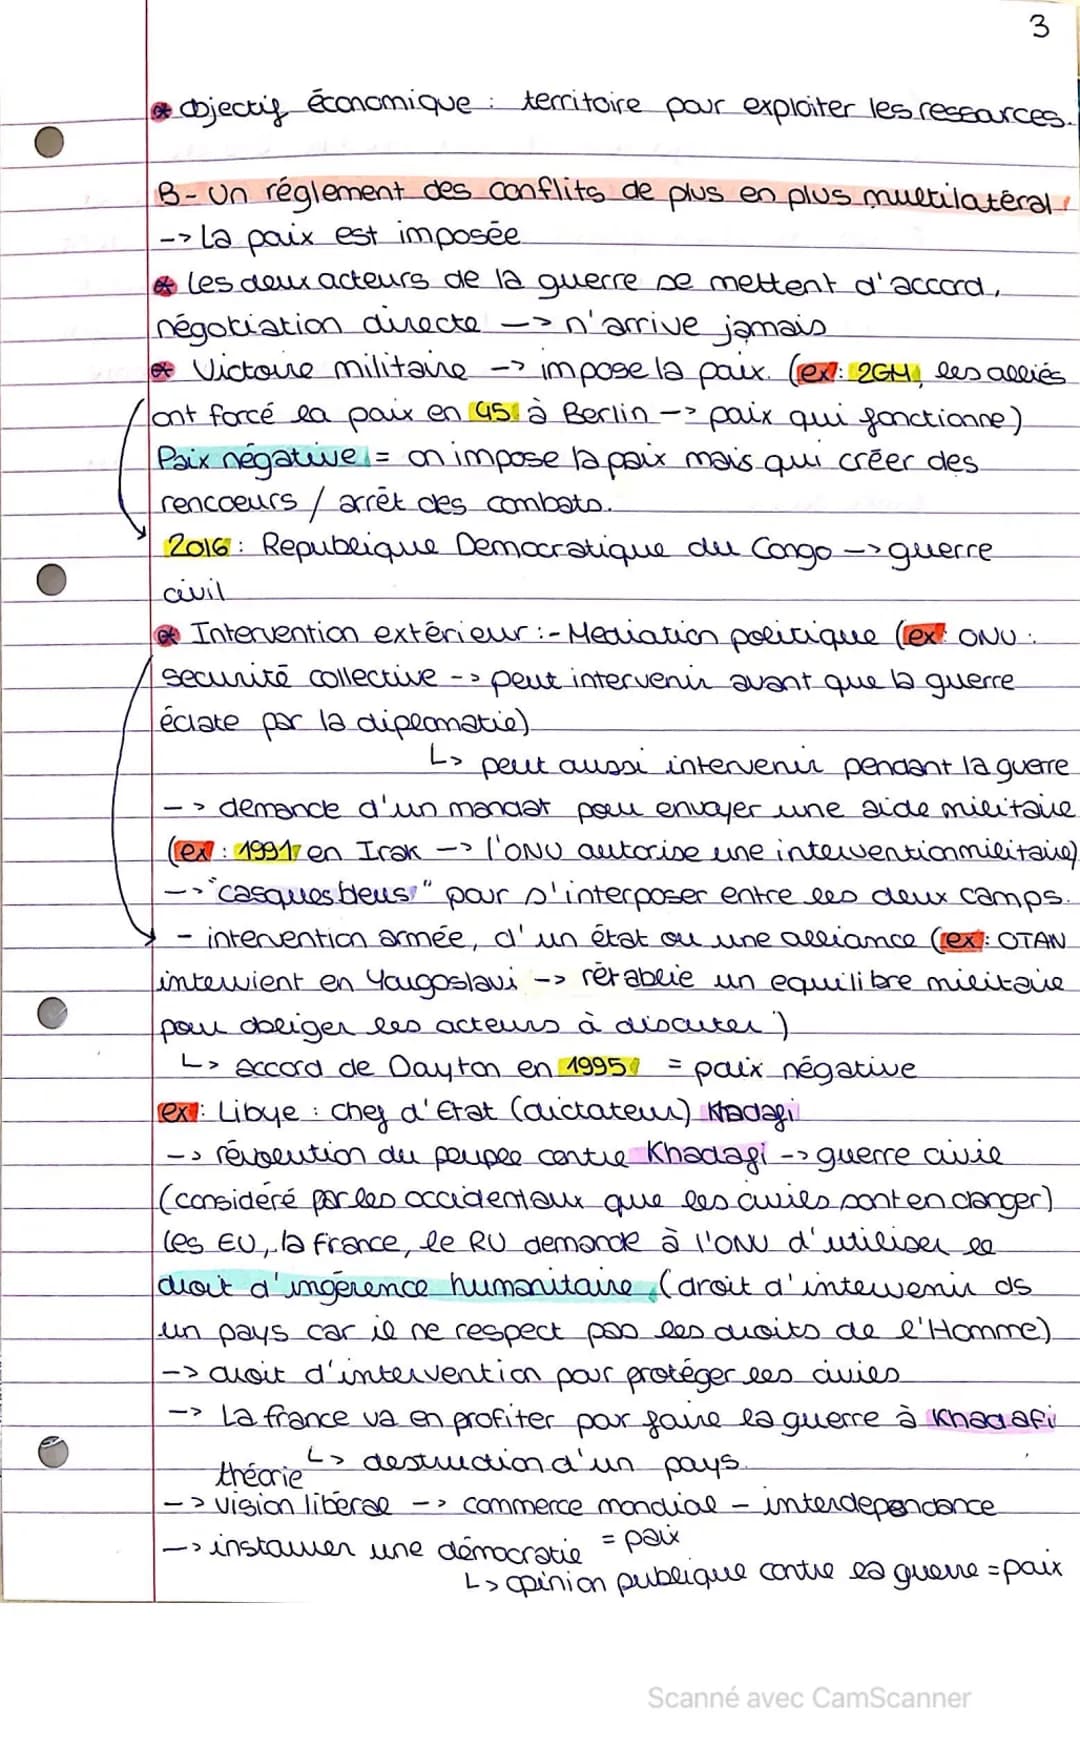 3
objectif économique : territoire pour exploiter les ressources.
B- Un réglement des conflits de plus en plus multilatéral
-> La paix est imposée
Les deux acteurs de la guerre se mettent d'accord,
négotiation directe -> n'arrive jamais
Victoire militaire -> impose la paix. (ex: 2GM, les alliés
ont forcé la paix en 45 à Berlin -> paix qui fonctionne)
Paix négative = on impose la paix mais qui créer des
rencoeurs / arrêt des combats.
2016 : Republique Democratique du Congo -> guerre
civil
Intervention extérieur :- Mediation politique (ex: ONU :
securité collective -> peut intervenir avant que la guerre
éclate par la diplomatie)
↳ peut aussi intervenir pendant la guerre
-> demande d'un mandat pour envoyer une aide militaire
(ex : 1991 en Irak -> l'ONU autorise une intervention militaire)
-> "casques bleus" pour s'interposer entre les deux camps.
- intervention armée, d'un état ou une alliance (ex: OTAN
intervient en Yougoslavi -> rétablie un equilibre militaire
pour obliger les acteurs à discuter)
↳ accord de Dayton en 1995 = paix négative
ex : Libye : chef d'Etat (dictateur) Khadafi
-> révolution du peuple contre Khadafi -> guerre civile
(considéré par les occidentaux que les civils sont en danger)
les EU, la france, le RU demande à l'ONU d'utiliser le
droit d'ingérence humanitaire (droit d'intervenir ds
un pays car il ne respect pas les droits de l'Homme)
-> droit d'intervention pour protéger les civils
-> La france va en profiter pour faire la guerre à Khadafi
↳ destruction d'un pays.
théorie
-> vision libérale -> commerce mondial - interdependance
= paix
-> instaurer une démocratie
↳ opinion publique contre la guerre = paix
Scanné avec CamScanner